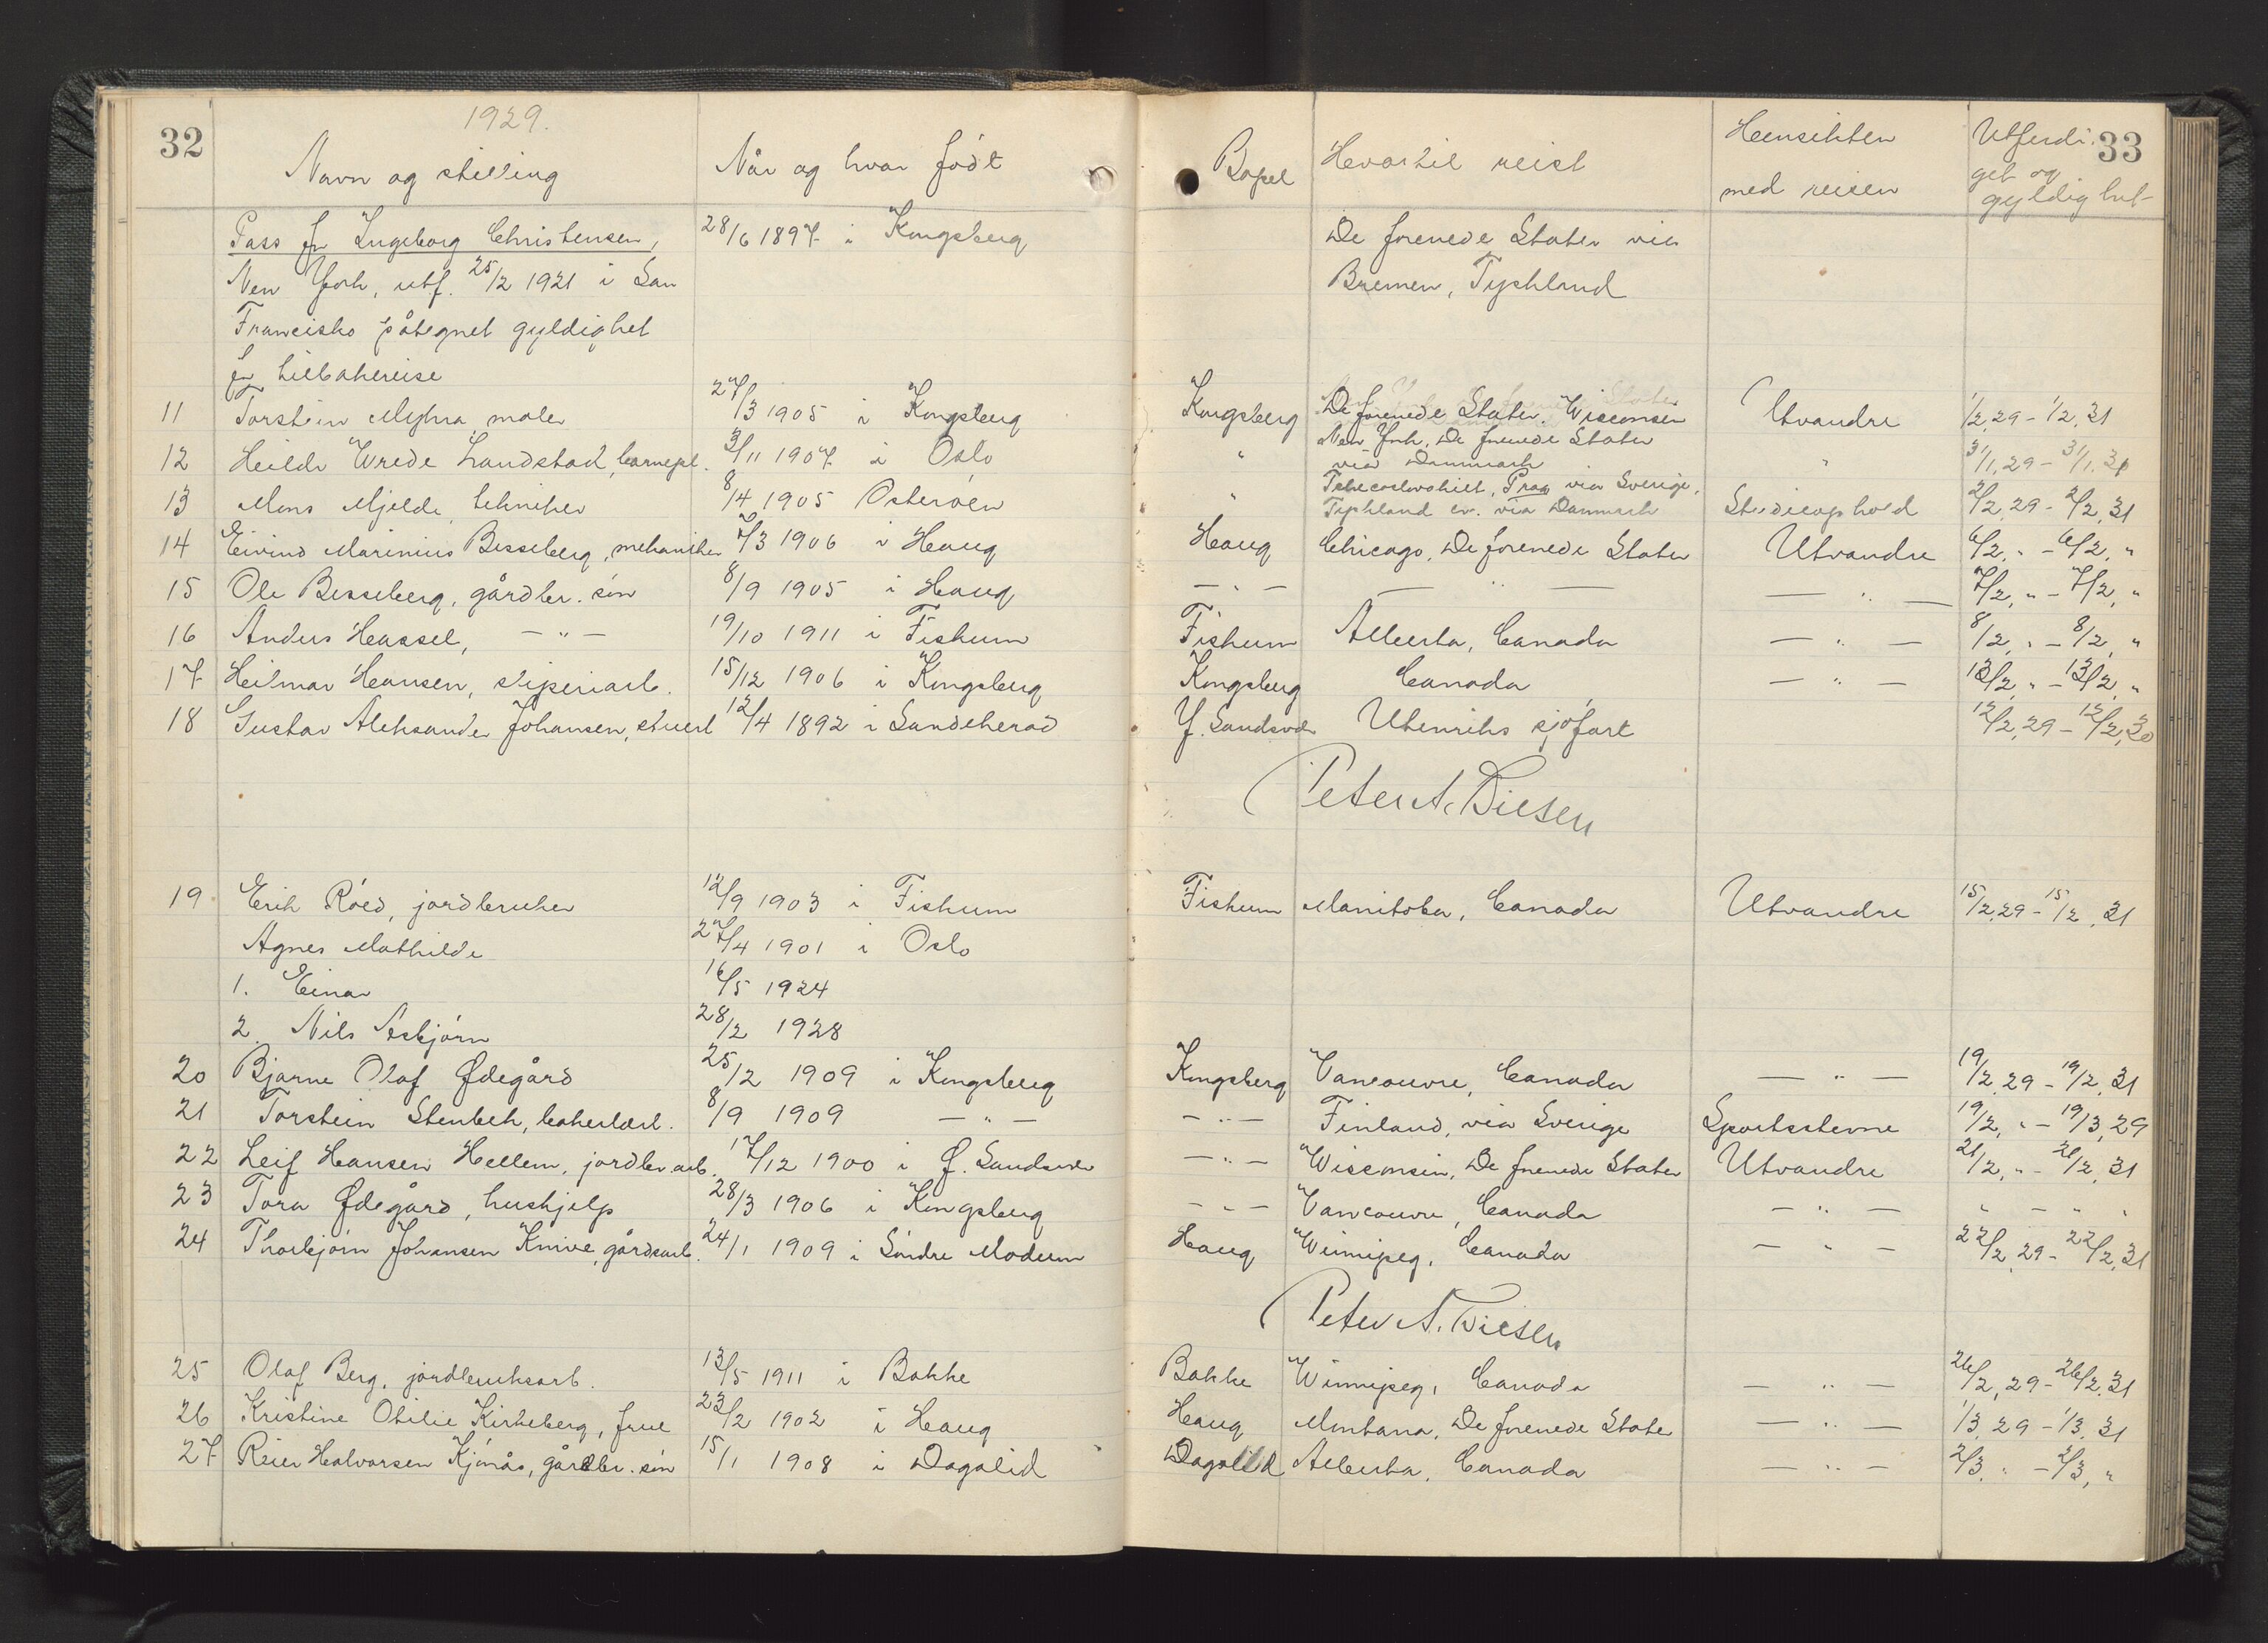 32
1929.
Navn og stilling
Når og hvor født
Bopel
Hvortil reist
Hensikten
med reisen
Utferdi-
get og
gyldighet
33
Pass for Ingeborg Christensen, 28/6 1897 i Kongsberg De forenede Stater via
New York, utf. 25/2 1921 i San Bremen, Tyskland
Francisko påtegnet gyldighet
for tilbakereise
11 Torstein Myhra, maler 27/3 1905 i Kongsberg Kongsberg De forenede Stater. Wisconsen Utvandre 1/2.29 - 1/2.31
12 Hilda Wrede Landstad, barnepl. 3/11 1907 i Oslo " New York, De forenede Stater " 31/1.29 - 31/1.31
via Danmark
13 Mons Mjelde, tekniker 8/4 1905 Osterøen " Tshecoslovakiet, Prag via Sverige, Studieophold 2/2.29 - 2/2.31
Tyskland ev. via Danmark
14 Eivind Marinius Besseberg, mekaniker 7/3 1906 i Haug Haug Chicago, De forenede Stater Utvandre 6/2. " - 6/2. "
15 Ole Besseberg, gårdbr. søn 8/9 1905 i Haug — " — — " — — " — 7/2. " - 7/2. "
16 Anders Hassel, — " — 19/10 1911 i Fiskum Fiskum Alberta, Canada — " — 8/2. " - 8/2. "
17 Hilmar Hansen, sliperiarb. 15/12 1906 i Kongsberg Kongsberg Canada — " — 13/2. " - 13/2. "
18 Gustav Aleksander Johansen, stuert 12/4 1892 i Sandeherad Y. Sandsvær Utenriks sjøfart 12/2.29 - 12/2.30
Peter A. Diesen
19 Erik Røed, jordbruker 12/9 1903 i Fiskum Fiskum Manitoba, Canada Utvandre 15/2.29 - 15/2.31
Agnes Mathilde 27/4 1901 i Oslo
1. Einar 16/5 1924
2. Nils Asbjørn 28/2 1928
20 Bjarne Olaf Ødegård 25/12 1909 i Kongsberg Kongsberg Vancouvre, Canada — " — 19/2.29 - 19/2.31
21 Torstein Stenbek, bakerlærl. 8/9 1909 — " — — " — Finland, via Sverige Sportsstevne 19/2. " - 19/3.29
22 Leif Hansen Hellem, jordbr. arb. 17/12 1900 i Ø. Sandsvær — " — Wisconsin, De forenede Stater Utvandre 21/2. " - 21/2.31
23 Tora Ødegård, hushjelp 28/3 1906 i Kongsberg — " — Vancouvre, Canada — " — " — " "
24 Thorbjørn Johansen Knive, gårdsarb. 24/1 1909 i Søndre Modum Haug Winnipeg, Canada — " — 22/2.29 - 22/2.31
Peter A. Diesen
25 Olaf Berg, jordbruksarb. 13/5 1911 i Bakke Bakke Winnipeg, Canada — " — 26/2.29 - 26/2.31
26 Kristine Otilie Kirkeberg, frue 23/2 1902 i Haug Haug Montana, De forenede Stater — " — 1/3.29 - 1/3.31
27 Reier Halvorsen Kjønås, gårdbr. søn 15/1 1908 i Dagalid Dagalid Alberta, Canada — " — 2/3. " - 2/3. "